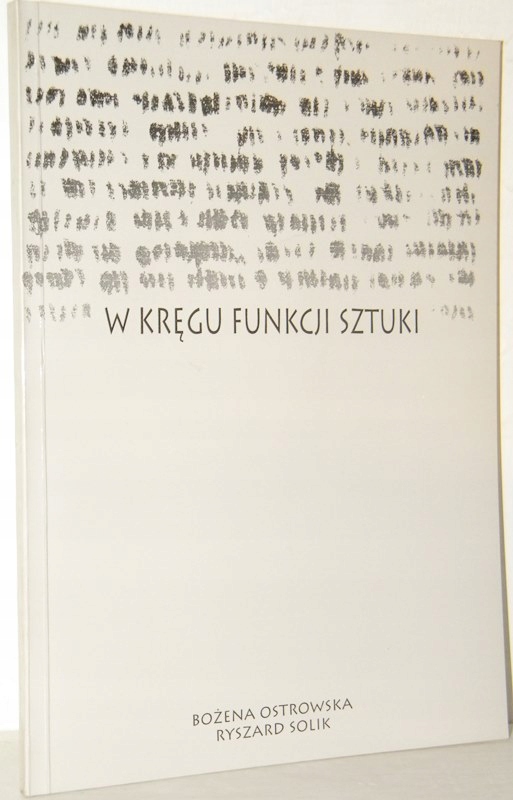 W KRĘGU FUNKCJI SZTUKI
BOŻENA OSTROWSKA
RYSZARD SOLIK